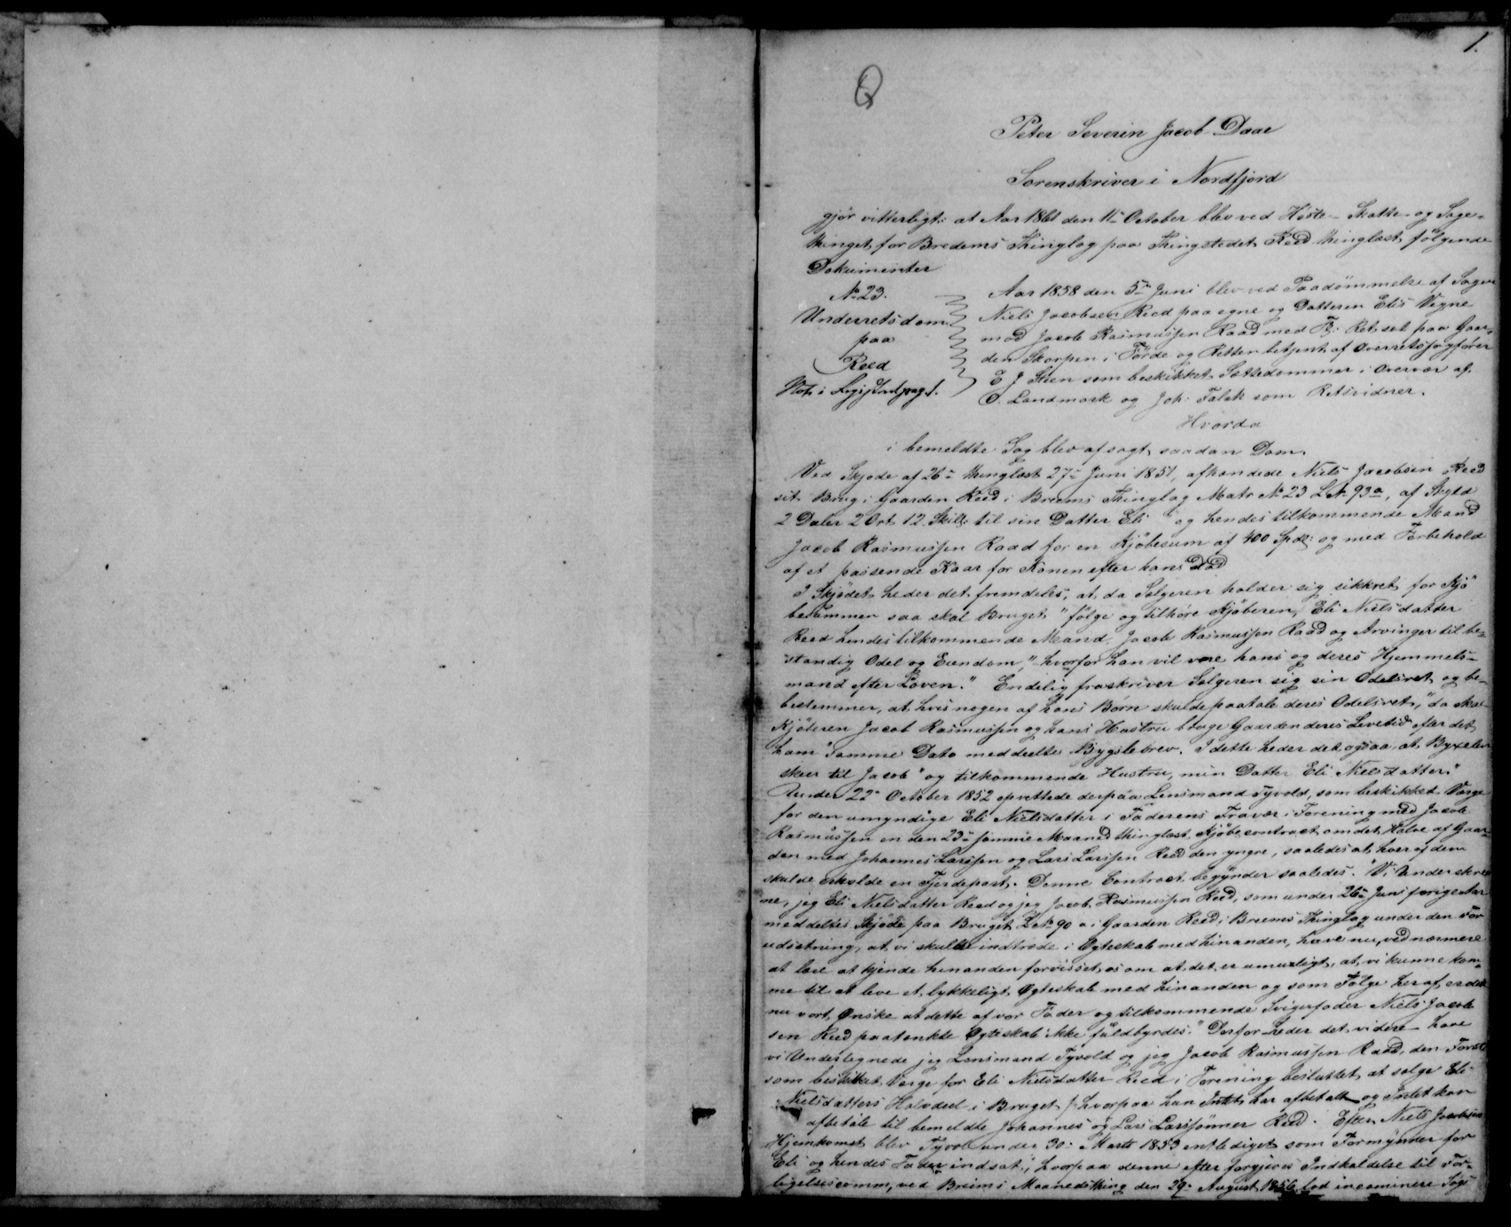 1.
Q
Peter Severin Jacob Daae
Sorenskriver i Nordfjord
gjör vitterligt: at Aar 1861 den 11te October blev ved Höste- Skatte- og Sage-
thinget for Bredems Thinglag paa Thingstedet Reed thinglæst følgende
Dokumenter
No 23.
Underretsdom
paa
Reed
Not. i Regist. pag. 1.
Aar 1858 den 5te Juni blev ved Paadömmelse af Sagen
Niels Jacobsen Reed paa egne og Datteren Elis Vegne
mod Jacob Rasmussen Raad med F: Ret sat paa Gaar-
den Skorpen i Förde og Retten betjent af Overretssagförer
E J Steen som beskikket Sættedommer i Overvær af
O. Landmark og Joh. Falch som Retsvidner.
Hvorda
i bemeldte Sag blev afsagt saadan Dom.
Ved Skjöde af 26de thinglæst 27de Juni 1851, afhændede Niels Jacobsen Reed
sit Brug i Gaarden Reed i Breims Thinglag Matr No 23 L No 93a, af Skyld
2 Daler 2 Ort 12 Skill. til sin Datter Eli og hendes tilkommende Mand
Jacob Rasmussen Raad for en Kjöbesum af 400 Spd. og med Forbehold
af et passende Kaar for Konen efter hans Död
I Skjödet heder det fremdeles, at da Sælgeren holder sig sikkret for Kjö
besummen saa skal Bruget "fölge og tilhöre Kjöberen, Eli Nielsdatter
Reed hendes tilkommende Mand, Jacob Rasmussen Raad og Arvinger til be-
standig Odel og Eiendom," hvorfor han vil være hans og deres Hjemmels-
mand efter Loven." Endelig fraskriver Sælgeren sig sin Odelsret og be-
bestemmer, at hvis nogen af hans Börn skulde paatale deres Odelsret, "da skal
Kjöberen Jacob Rasmussen og hans Hustru bruge Gaarden deres Levetid efter det
ham samme Dato meddeelte Bygselbrev. I dette heder det ogsaa, at Byxelen
skeer til Jacob "og tilkommende Hustru, min Datter Eli Nielsdatter."
Under 22de October 1852 oprettede derpaa Lensmand Tyvold, som beskikket Værge
for den umyndige Eli Nielsdatter i Faderens Fravær i Forening med Jacob
Rasmussen en den 23de samme Maaned thinglæst Kjöbecontract om det Halve af Gaar-
den med Johannes Larssen og Lars Larssen Reed den yngre, saaledes at hver af dem
skulde erholde en Fjerdepart. Denne Contract begynder saaledes. "Vi Underskrev
ne, jeg Eli Nielsdatter Reed og jeg Jacob Rasmussen Reed, som under 26de Juni forige Aar
meddeltes Skjöde paa Bruget L No 90 a i Gaarden Reed i Breims Thinglag under den For
udsætning, at vi skulle indtræde i Ægteskab med hinanden, have nu, ved nærmere
at lære at kjende hinanden forvisset os om at det er umueligt, at vi kunne kom-
me til at leve et lykkeligt Ægteskab med hinanden og som Fölge her af, er det
nu vort Önske at dette af vor Fader og tilkommende Svigerfader Niels Jacob
sen Reed paatænkte Ægteskab ikke fuldbyrdes." Derfor heder det videre have
vi Undertegnede jeg Lensmand Tyvold og jeg Jacob Rasmussen Raad, den Förste
som beskikket Værge for Eli Nielsdatter Reed i Forening besluttet at sælge Eli
Nielsdatters Halvdeel i Bruget, hvorpaa han Intet har afbetalt og Intet kan
afbetale til bemeldte Johannes og Lars Larssönner Reed. Efter Niels Jacobsens
Hjemkomst blev Tyvold under 30. Marts 1853 entlediget som Formynder for
Eli og hendes Fader indsat, hvorpaa denne efter forgjæves Indkaldelse til For-
ligelsescomm, ved Breims Maanedsthing den 29. August 1856 lod incaminere Sögs